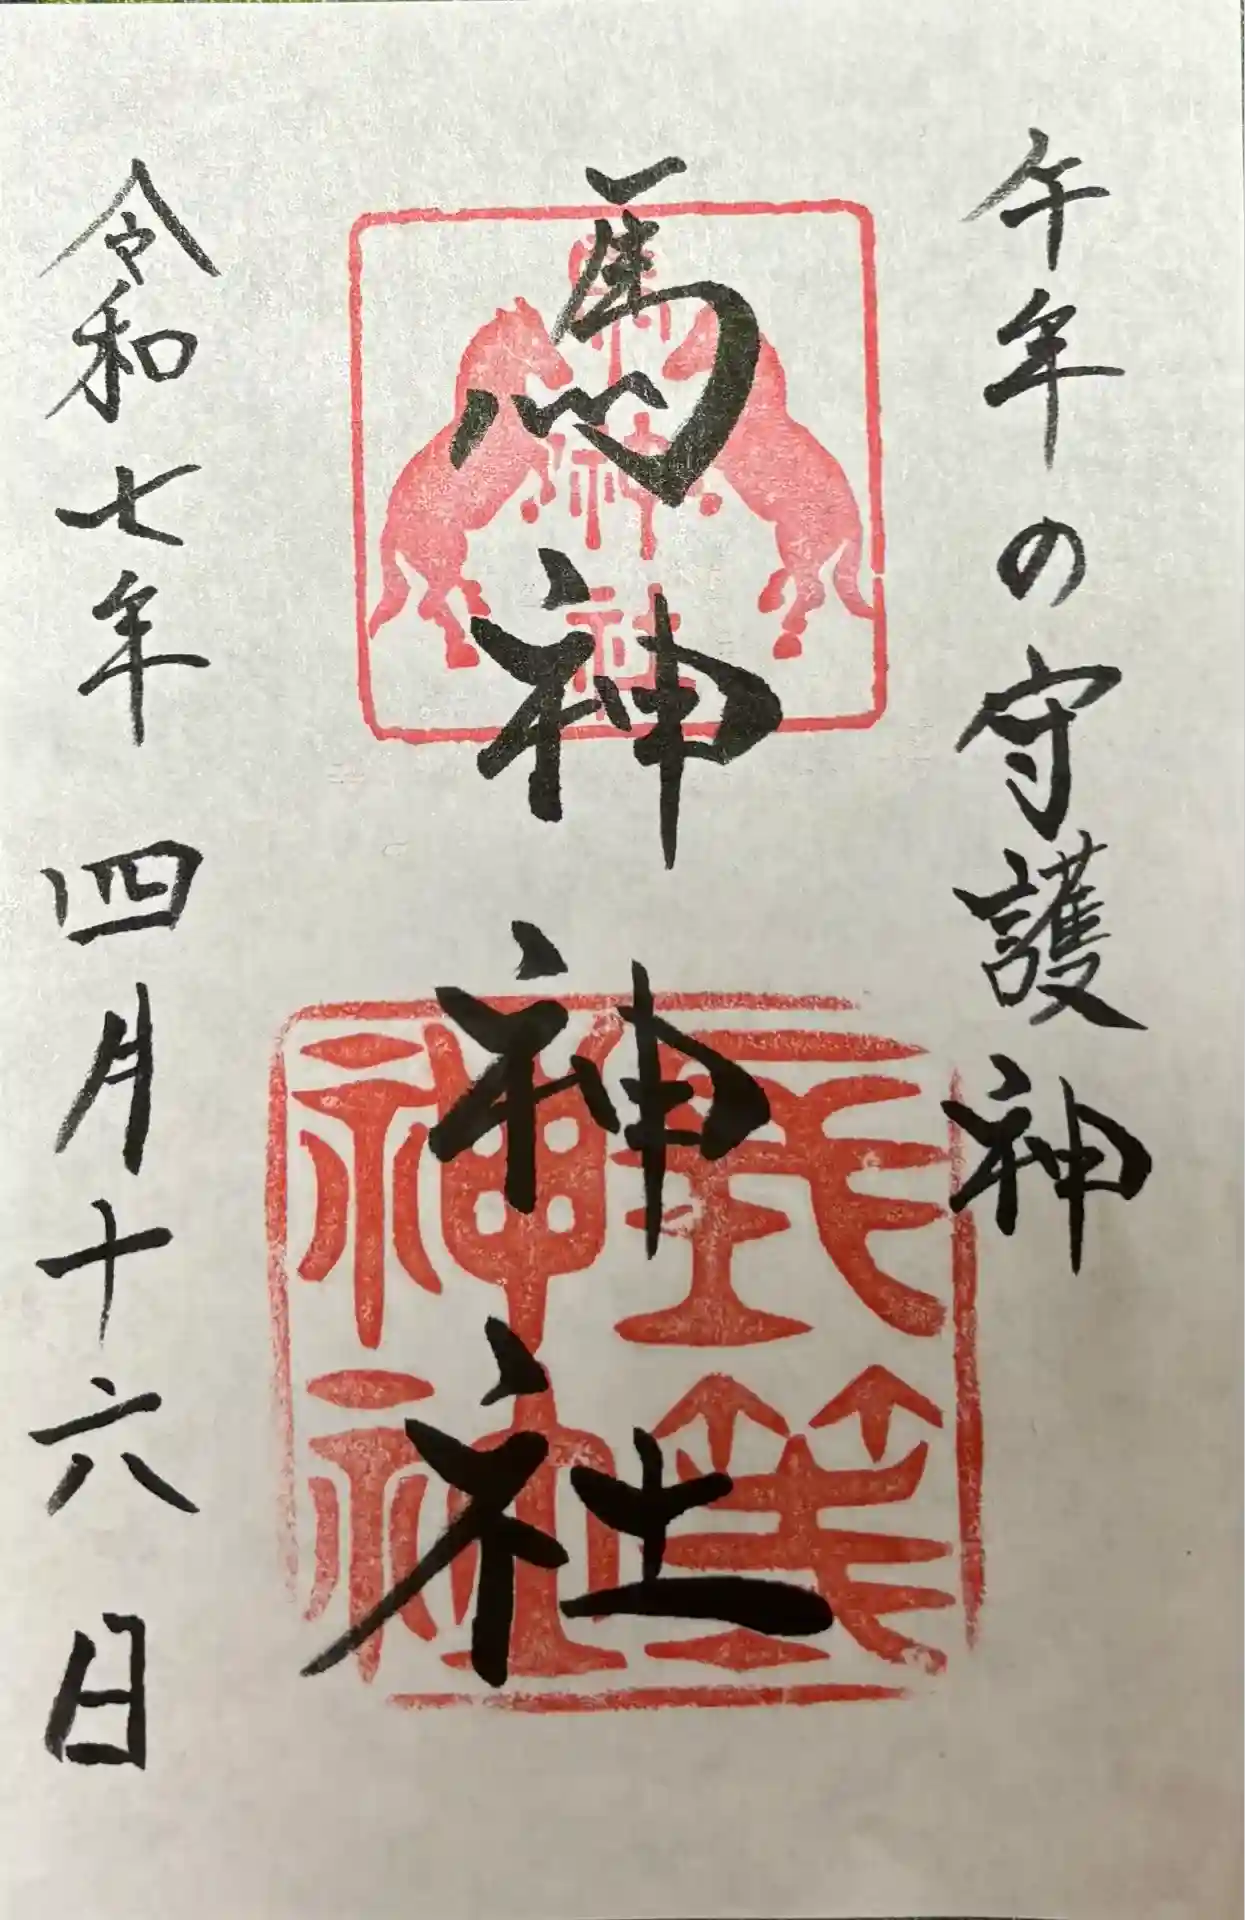 午年の守護神
馬神神社
馬神神社
令和七年四月十六日